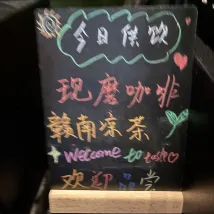 今日供饮
现磨咖啡
赣南凉茶
Welcome to taste
欢迎品尝